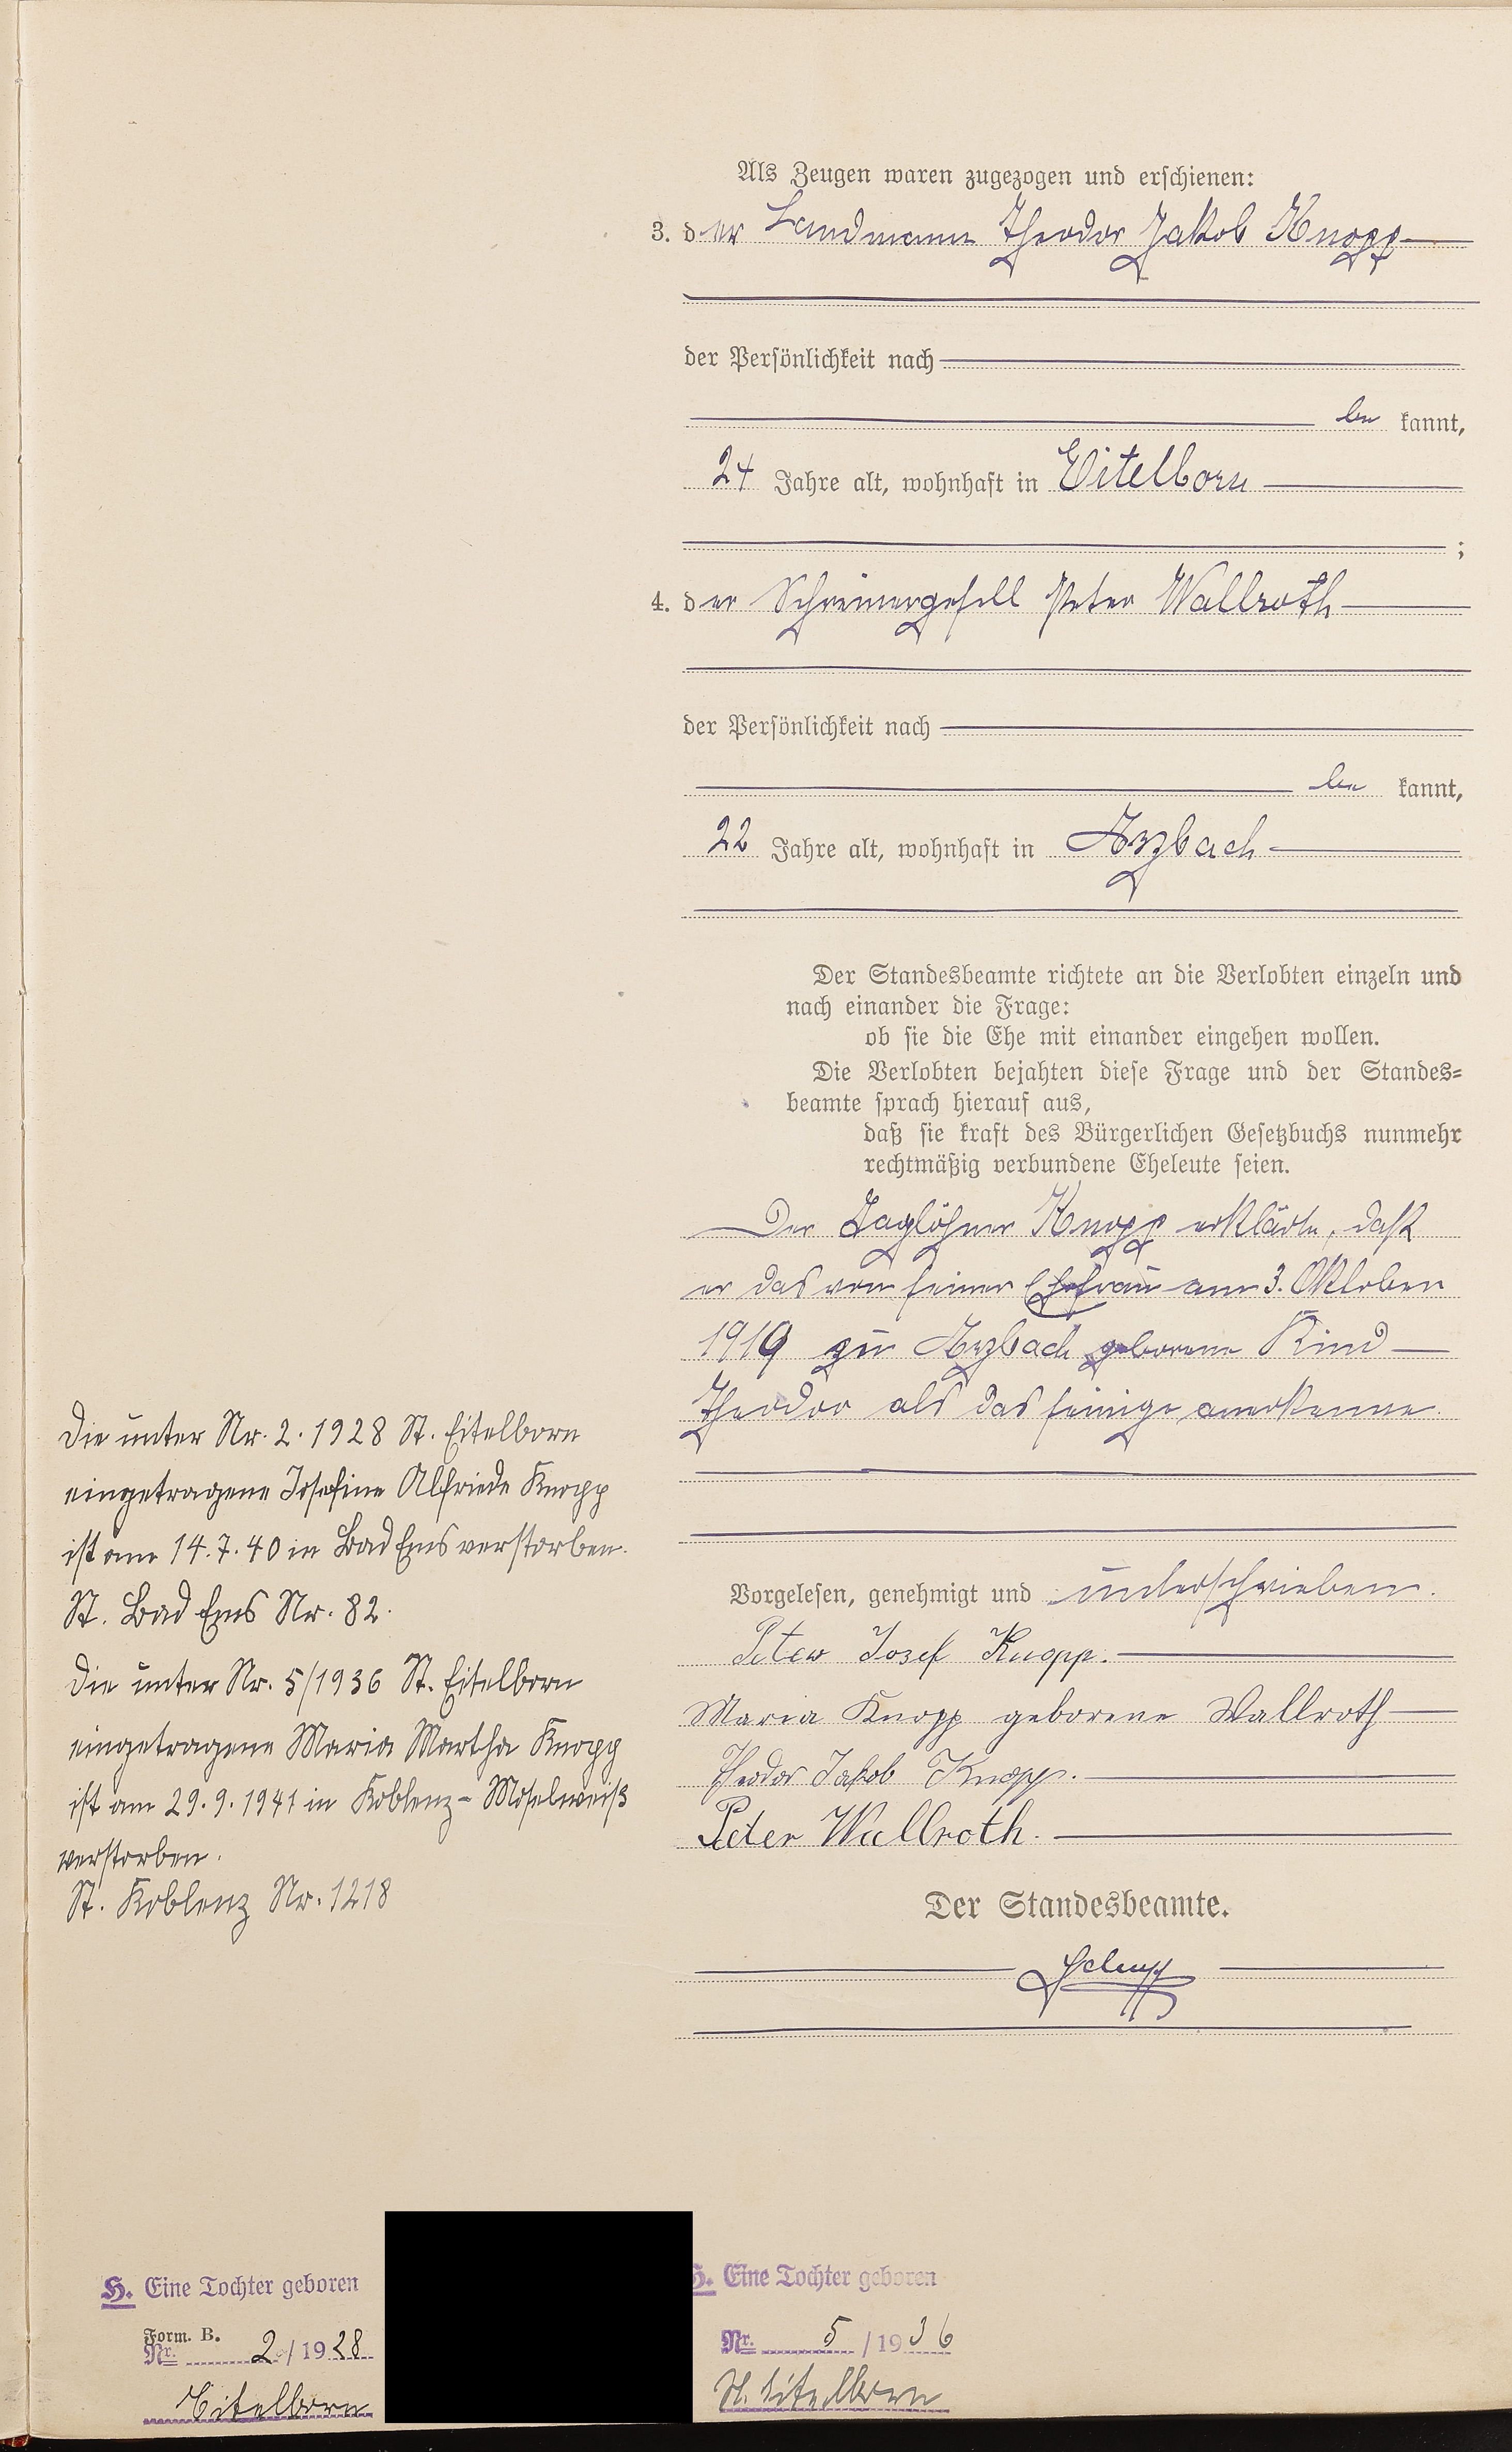 Als Zeugen waren zugezogen und erschienen:
3. der Landmann Theodor Jakob Knopp
der Persönlichkeit nach
be kannt,
24 Jahre alt, wohnhaft in Eitelborn
;
4. der Schreinergesell Peter Wallroth
der Persönlichkeit nach
be kannt,
22 Jahre alt, wohnhaft in Arzbach
Der Standesbeamte richtete an die Verlobten einzeln und
nach einander die Frage:
ob sie die Ehe mit einander eingehen wollen.
Die Verlobten bejahten diese Frage und der Standes-
beamte sprach hierauf aus,
daß sie kraft des Bürgerlichen Gesetzbuchs nunmehr
rechtmäßig verbundene Eheleute seien.
Der Taglöhner Knopp erklärte, daß
er das von seiner Ehefrau am 3. Oktober
1919 zu Arzbach geborene Kind
Theodor als das seinige anerkenne.
Vorgelesen, genehmigt und unterschrieben.
Peter Josef Knopp.
Maria Knopp geborene Wallroth
Theodor Jakob Knopp.
Peter Wallroth.
Der Standesbeamte.
Die unter Nr. 2. 1928 St. Eitelborn
eingetragene Josefine Alfriede Knopp
ist am 14.7.40 in Bad Ems verstorben.
St. Bad Ems Nr. 82.
Die unter Nr. 5/1936 St. Eitelborn
eingetragene Maria Martha Knopp
ist am 29.9.1941 in Koblenz-Moselweiß
verstorben.
St. Koblenz Nr. 1218
H. Eine Tochter geboren
Form. B.
Nr. 2/1928
Eitelborn
H. Eine Tochter geboren
Nr. 5/1936
St. Eitelborn